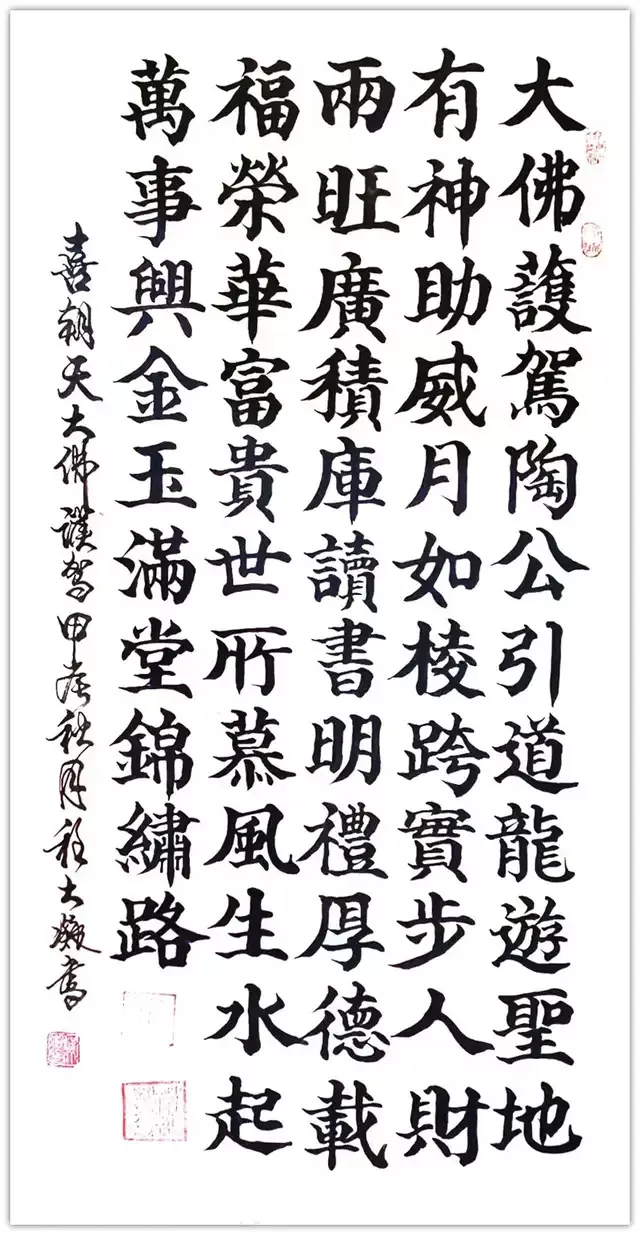 大佛護駕陶公引道龍遊聖地
有神助威月如棱跨實步人財
兩旺廣積庫讀書明禮厚德載
福榮華富貴世所慕風生水起
萬事興金玉滿堂錦繡路
喜朝天大佛護駕甲辰秋月程大凝書